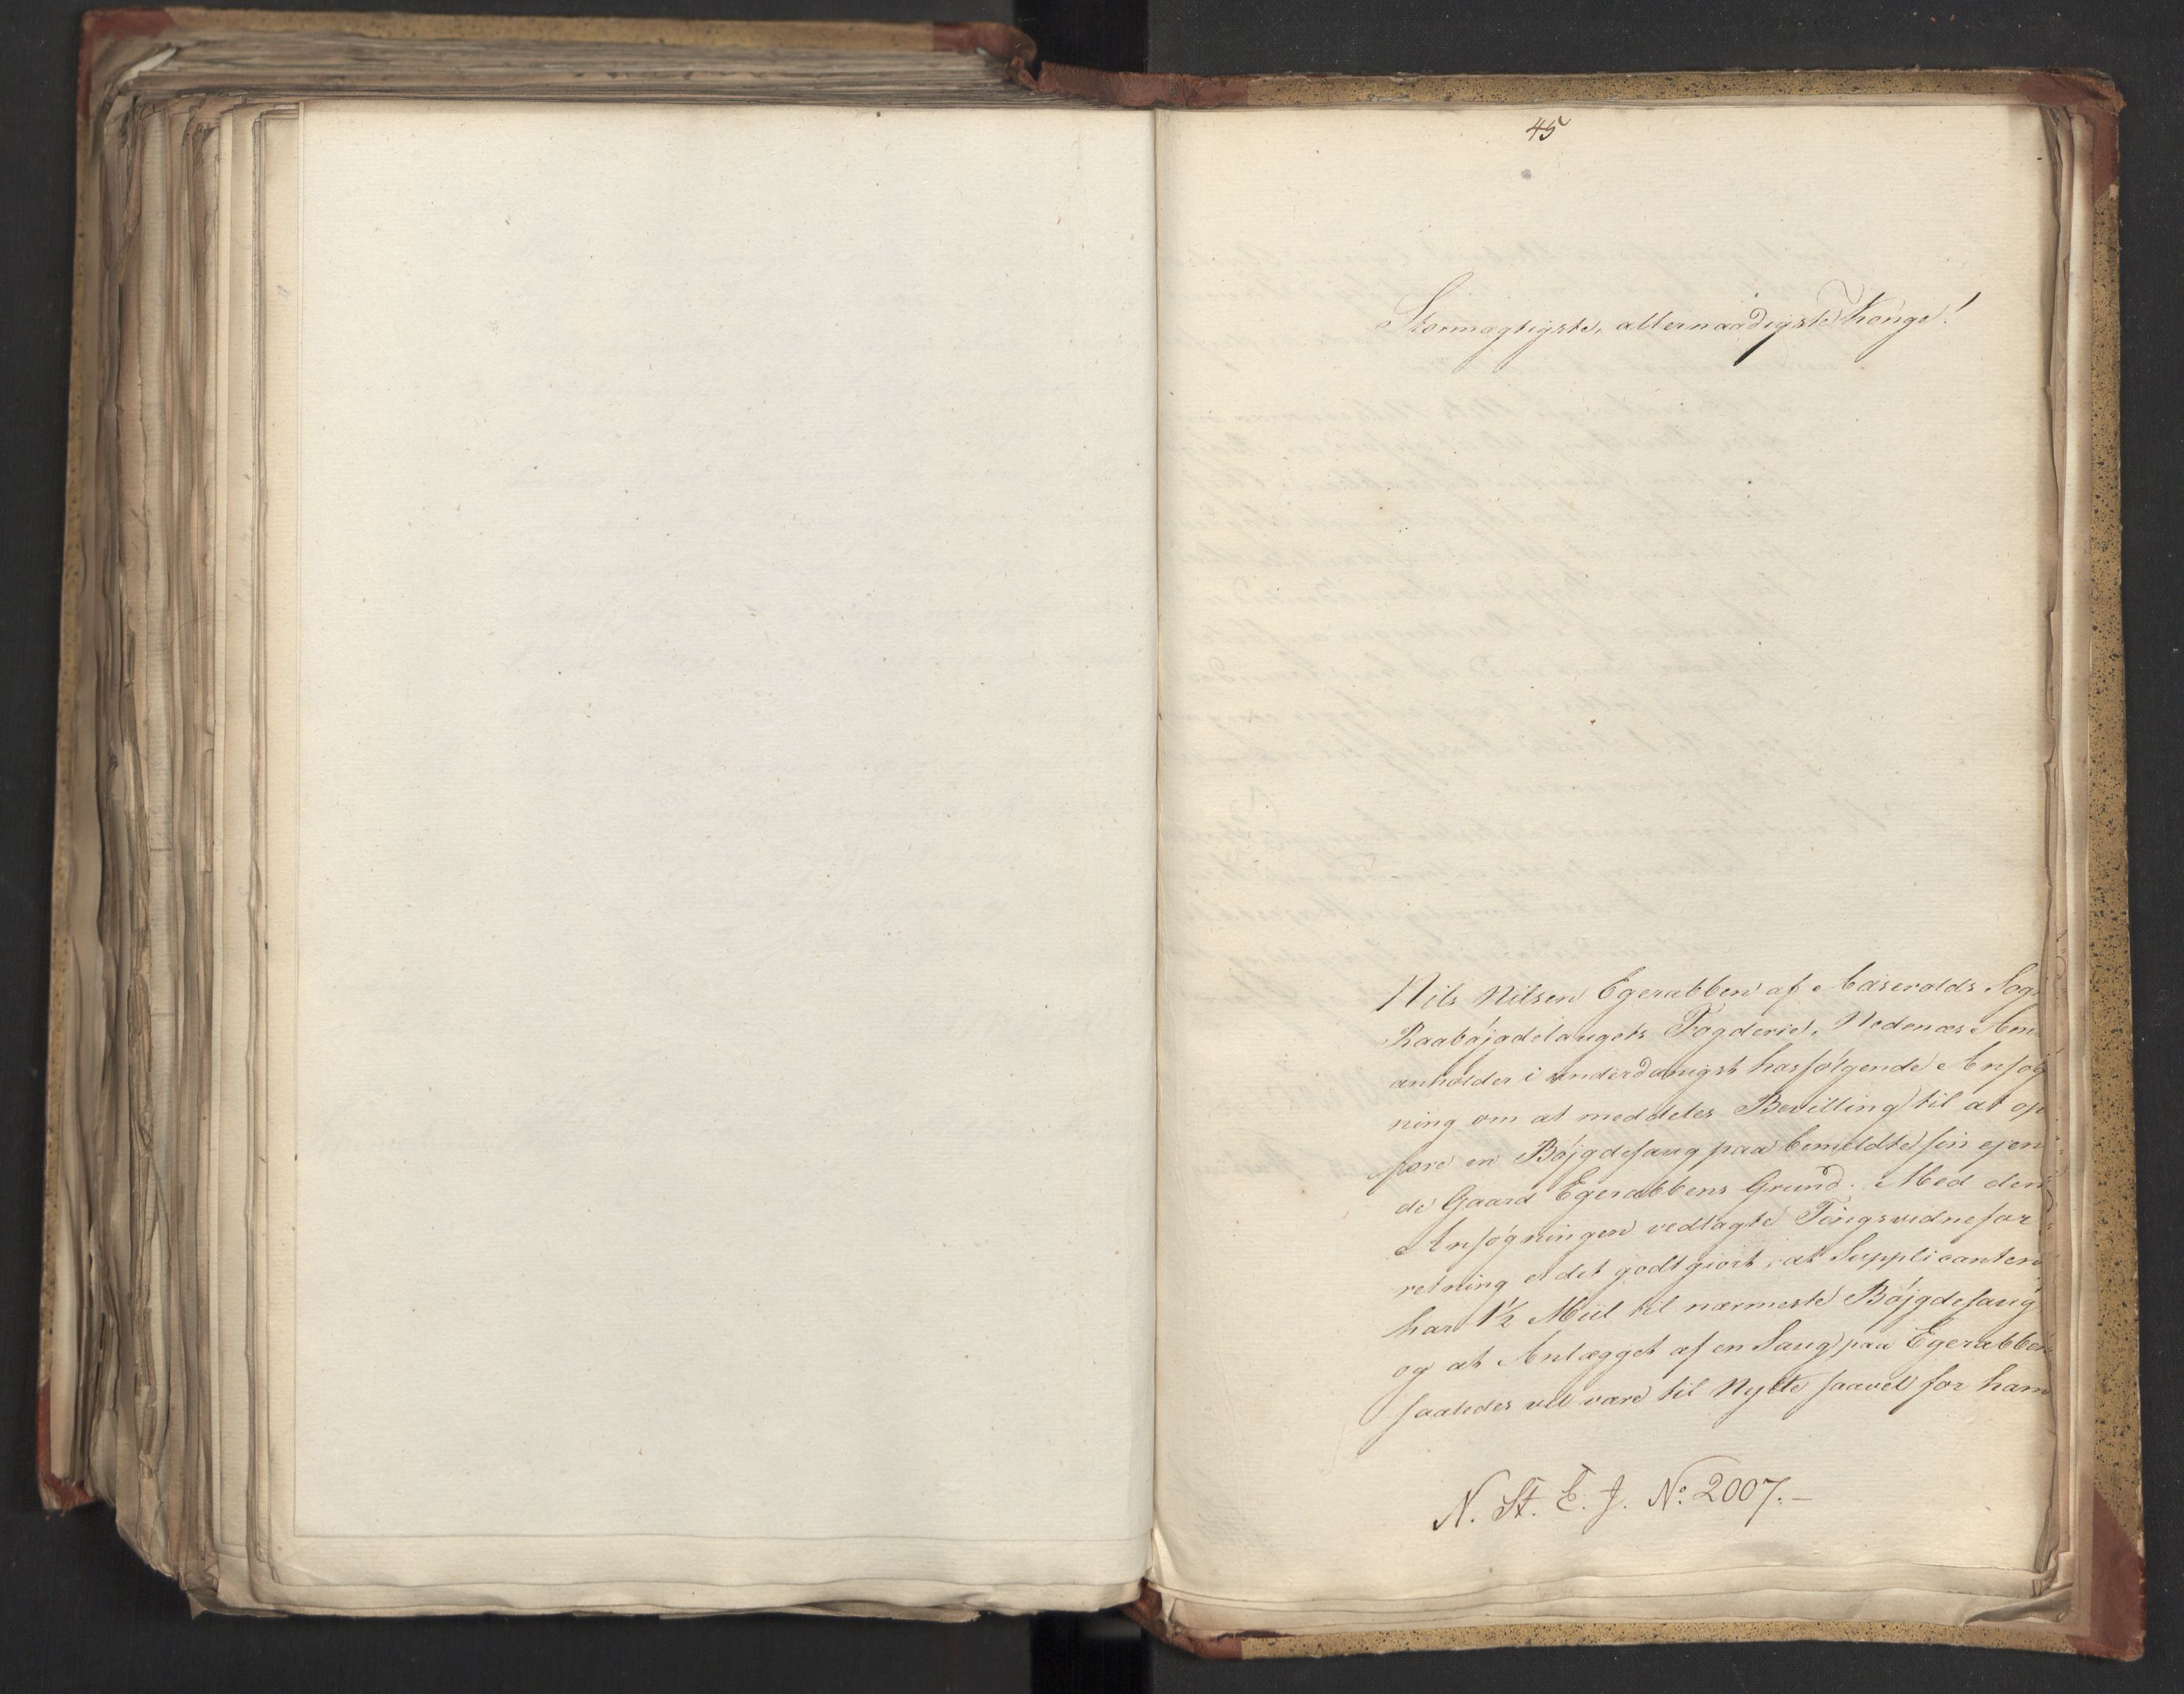 45
Stormægtigste, allernaadigste Konge!
Nils Nilsen Egerabben af Aaseralds Sog
Raabøjgdelaugets Fogderie, Nedenæs Am
anholder i underdanigst hosfølgende Ansøg
ning om at meddeles Bevilling til at op
føre en Bøjgdesaug paa bemeldte sin ejen
de Gaard Egerabbens Grund. Med den
Ansøgningen vedlagte Tingsvidnefor
retning er det godtgiort, at Supplicanten
har 1½ Miil til nærmeste Bøjgdesaug
og at Anlægget af en Saug paa Egerabben
saaledes vil være til Nytte saavel for ham
N. St. E. J. No. 2007.-